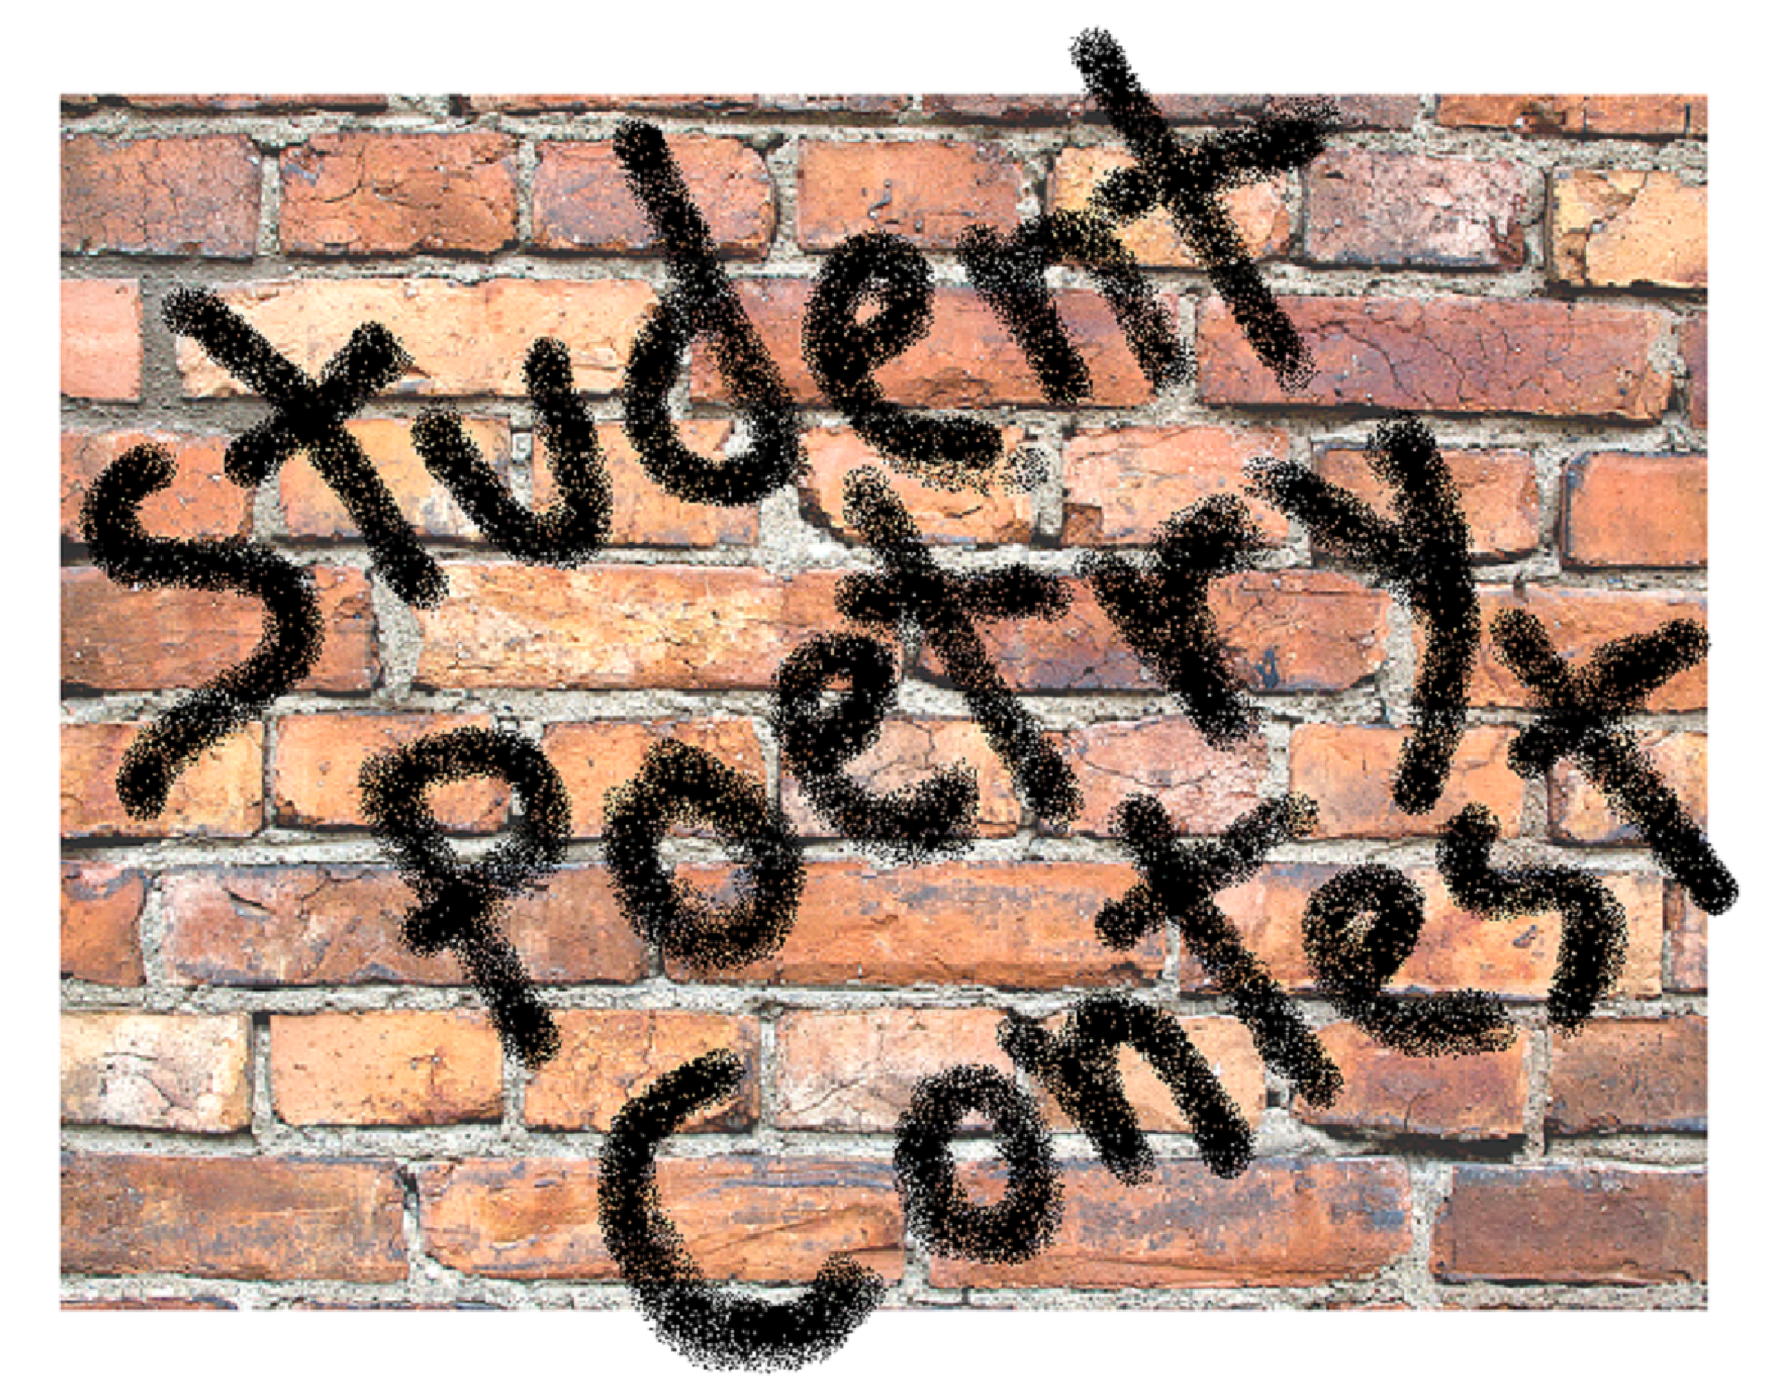 Student
Poetry
Contest